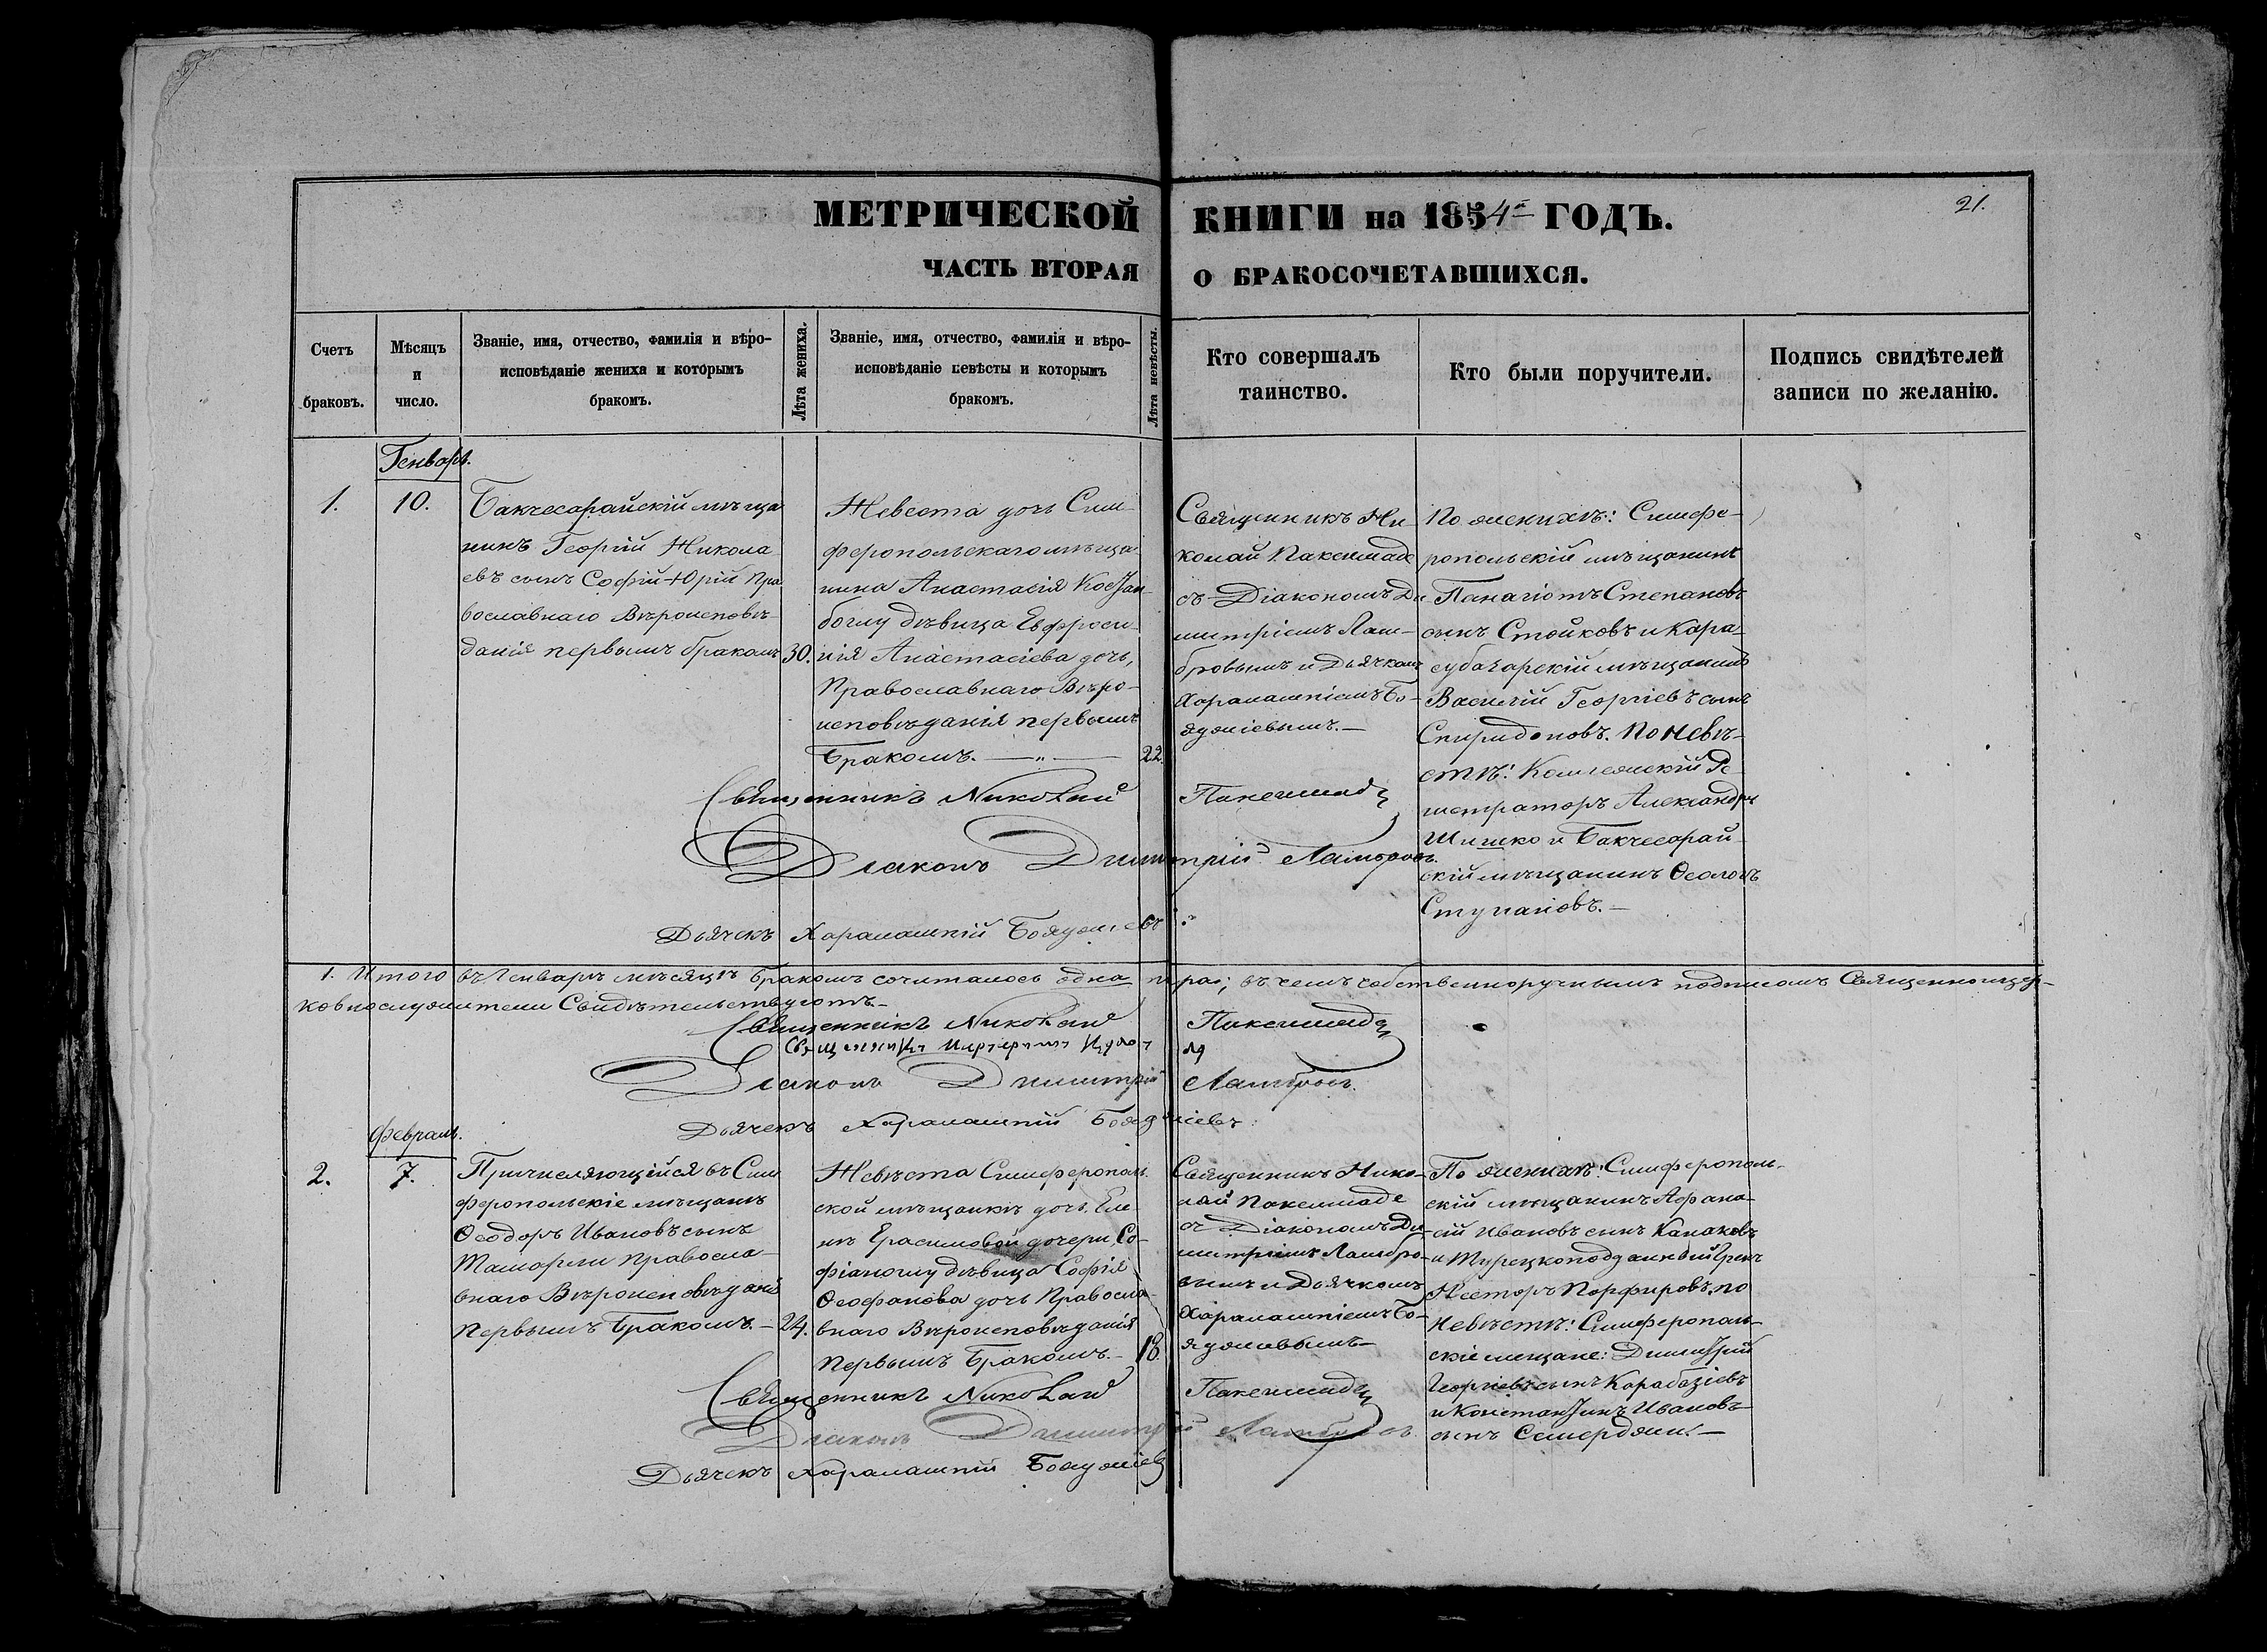 МЕТРИЧЕСКОЙ КНИГИ на 1854й ГОДЪ.
21.
ЧАСТЬ ВТОРАЯ О БРАКОСОЧЕТАВШИХСЯ.
Счетъ
браковъ.
Мѣсяцъ
и
число.
Званіе, имя, отчество, фамилія и вѣро-
исповѣданіе жениха и которымъ
бракомъ.
Лѣта жениха.
Званіе, имя, отчество, фамилія и вѣро-
исповѣданіе невѣсты и которымъ
бракомъ.
Лѣта невѣсты.
Кто совершалъ
таинство.
Кто были поручители.
Подпись свидѣтелей
записи по желанію.
Генварь.
1.
10.
Бакчесарайскій мѣща
нинъ Георгій Никола
евъ сынъ Софій-Юрій Пра
вославнаго Вѣроисповѣ-
данія первымъ бракомъ
30.
Невеста дочь Сим-
феропольскаго мѣща
нина Анастасія
боглу дѣвица Евфроси-
нія Анастасіева дочь,
Православнаго Вѣро-
исповѣданія первымъ
Бракомъ. — „ —
22.
Священникъ Ни-
колай Паксимаде
съ Діакономъ Ди
митріемъ Лам-
бровымъ и Дьячкомъ
Харалампіемъ Бо-
яджіевымъ. —
По женихѣ: Симфе-
ропольскій мѣщанинъ
Панагіотъ Степановъ
сынъ Стойковъ и Кара-
субазарскій мѣщанинъ
Василій Георгіевъ сынъ
Спиридоновъ. По Невѣ-
стѣ: Коллежскій Ре-
гистраторъ Александръ
Шишко и Бакчесарай
скій мѣщанинъ
Священникъ Николай Паксимаде
Діаконъ Димитрій Ламбровъ.
Дьячекъ Харалампій Бояджіевъ
1. Итого въ Генварѣ мѣсяцѣ Бракомъ сочиталось одна пара; въ чемъ собственноручнымъ подписомъ Священно и цер-
ковнослужители Свидѣтельствуютъ —
Священникъ Николай Паксимаде
Священникъ
Діаконъ Димитрій Ламбровъ.
Дьячекъ Харалампій Бояджіевъ
Февраль.
2.
7.
Причисляющійся въ Сим
феропольскіе мѣщане
Ѳеодоръ Ивановъ сынъ
Православ-
внаго Вѣроисповѣданія
Первымъ Бракомъ. —
24.
Невѣста Симферополь
ской мѣщанки дочь Еле
ны Ерасимовой дочери, Со-
фіаноглу дѣвица Софія
Ѳеофанова дочь Правосла-
внаго Вѣроисповѣданія
Первымъ Бракомъ. —
18.
Священникъ Нико-
лай Паксимаде
съ Діакономъ Ди
митріемъ Ламбро-
вымъ и Дьячкомъ
Харалампіемъ Бо-
яджіевымъ —
По женихѣ: Симферополь-
скій мѣщанинъ Афана-
сій Ивановъ сынъ Канаковъ
и Турецкоподданный Грекъ
Несторъ Порфировъ. по
Невѣстѣ: Симферополь-
скіе мещане: Димитрій
Георгіевъ сынъ Карабазіевъ
и Константинъ Ивановъ
сынъ
Священникъ Николай Паксимаде
Діаконъ Димитрій Ламбровъ
Дьячекъ Харалампій Бояджіевъ